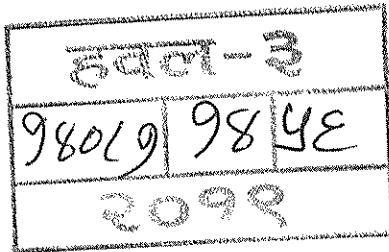 हवल-३
१४०८१ १४ ५६
२०११